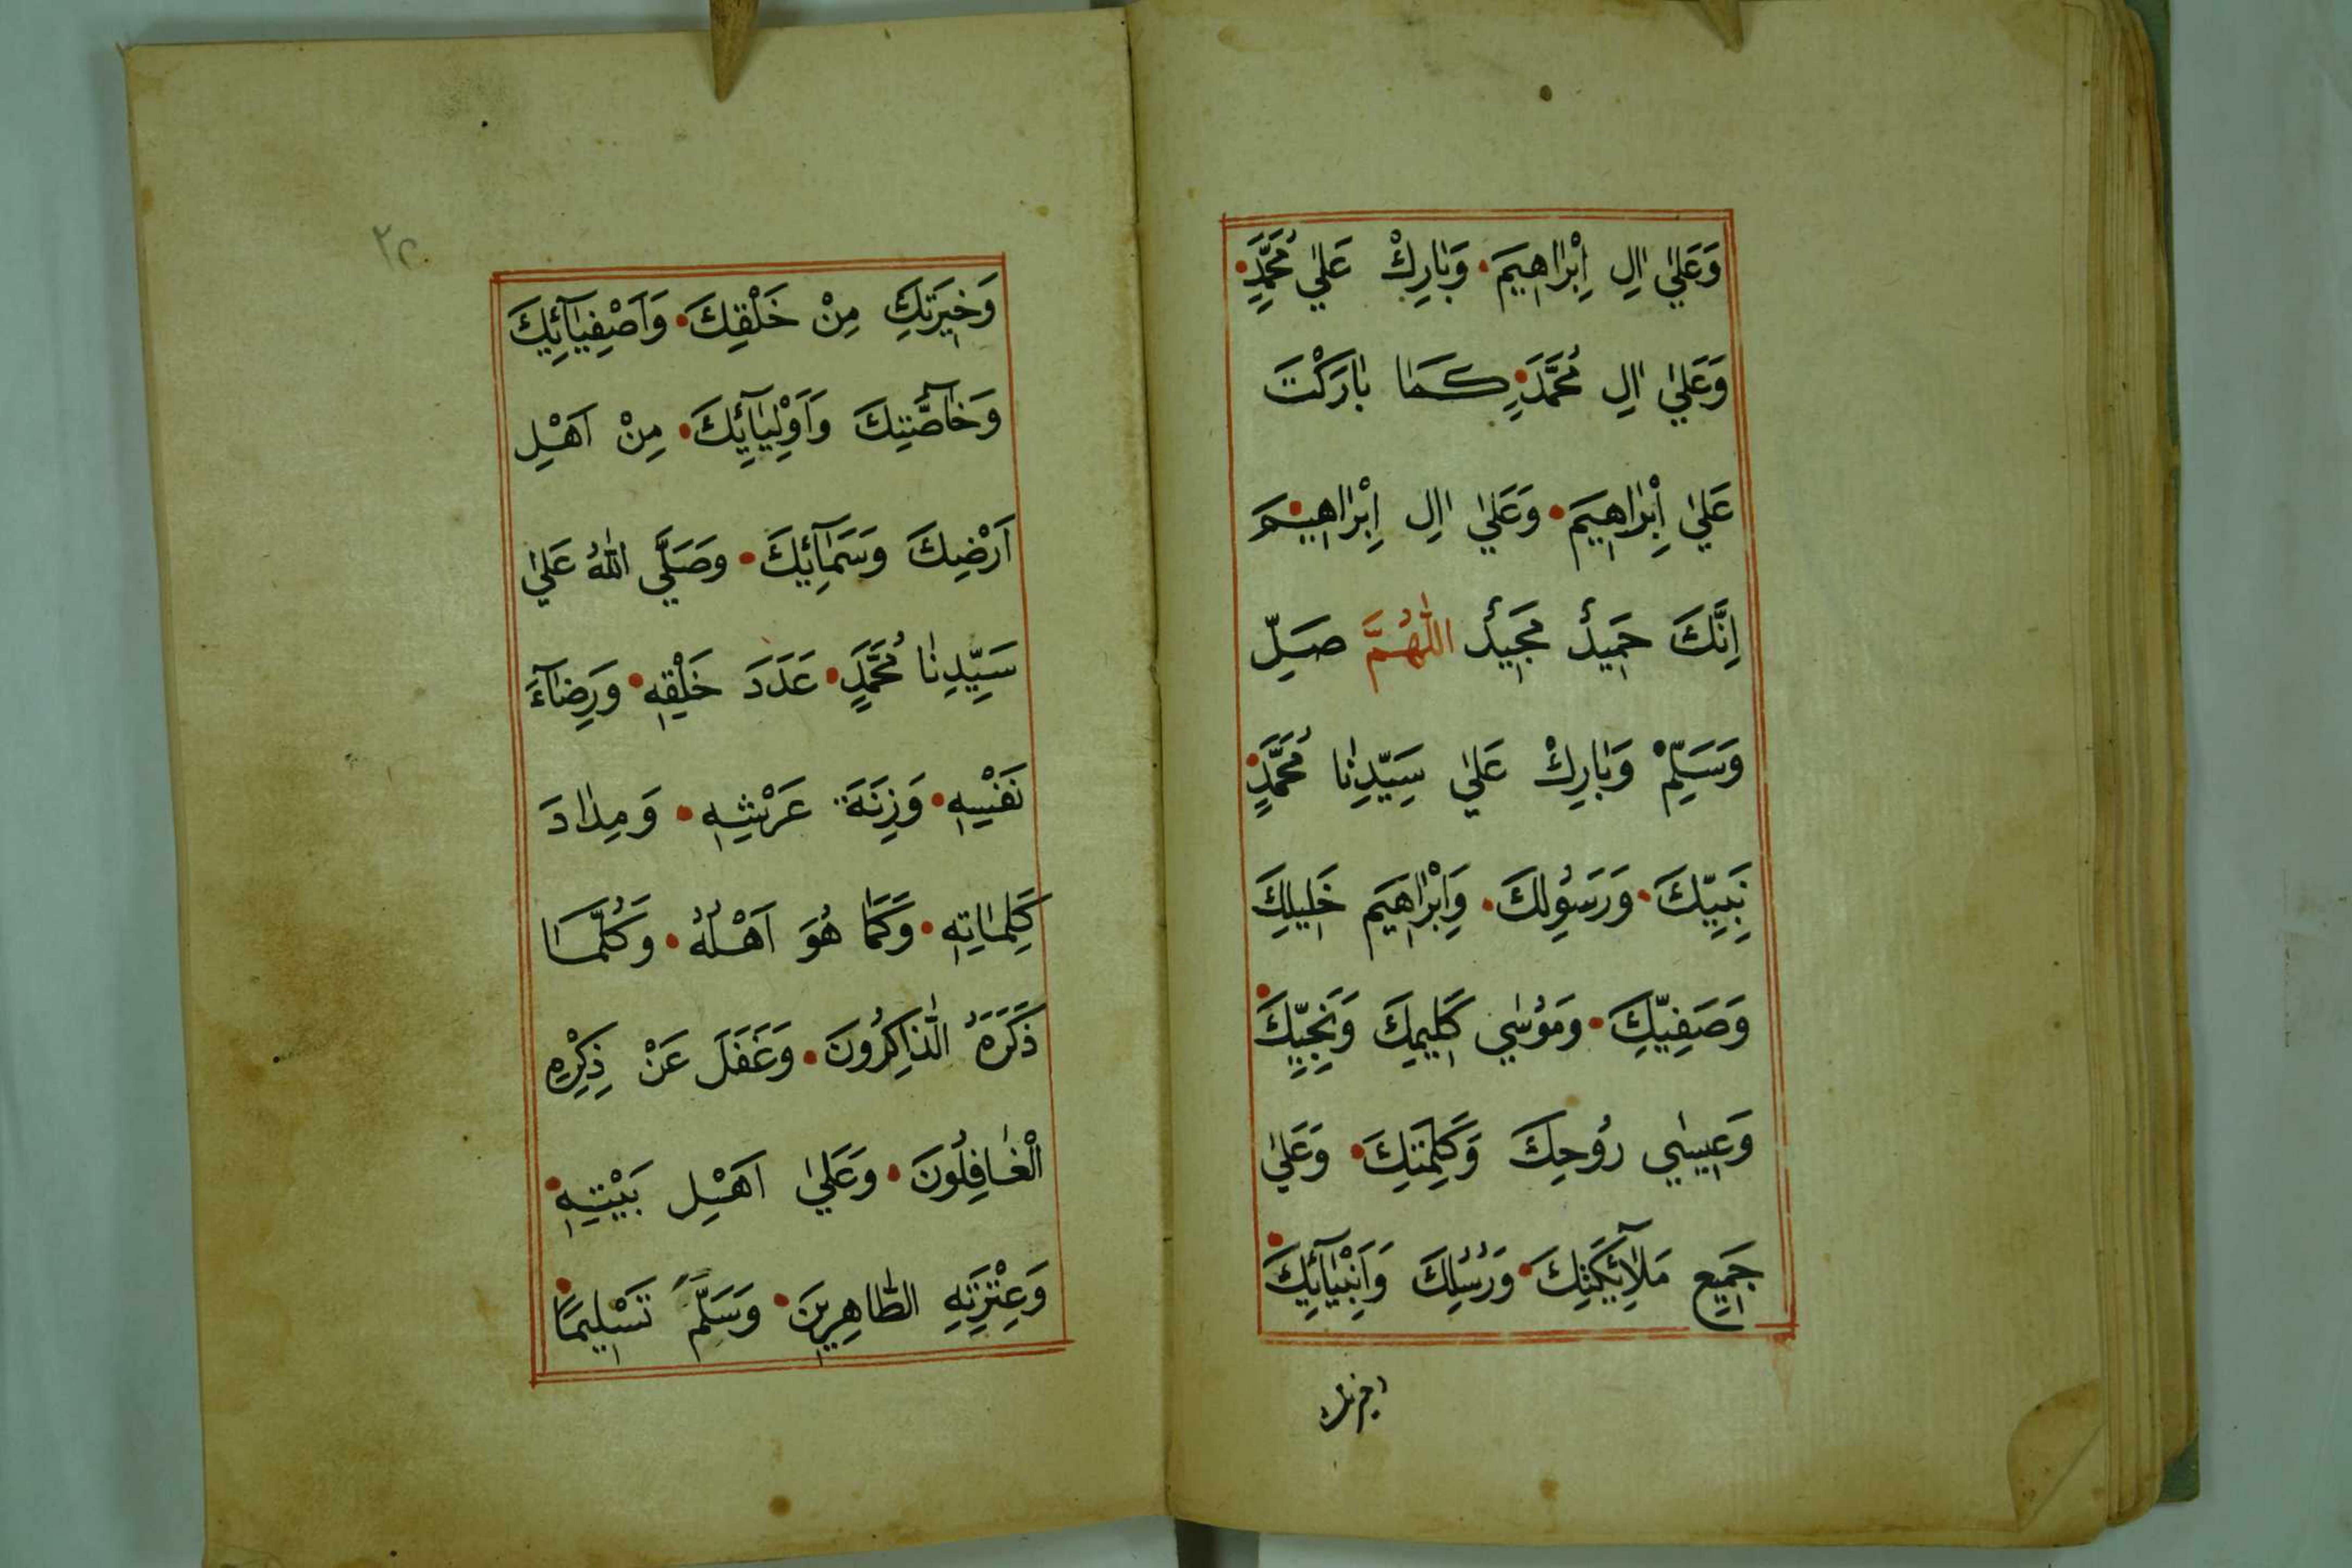 وَعَلٰي اٰلِ اِبْرٰاهٖيمَ • وَبٰارِكْ عَلٰي مُحَمَّدٍ •
وَعَلٰي اٰلِ مُحَمَّدٍ • كَمٰا بٰارَكْتَ
عَلٰي اِبْرٰاهٖيمَ • وَعَلٰي اٰلِ اِبْرٰاهٖيمَ •
اِنَّكَ حَمٖيدٌ مَجٖيدٌ اَللّٰهُمَّ صَلِّ
وَسَلِّمْ وَبٰارِكْ عَلٰي سَيِّدِنٰا مُحَمَّدٍ •
نَبِيِّكَ • وَرَسُولِكَ • وَاِبْرٰاهٖيمَ خَلٖيلِكَ
وَصَفِيِّكَ • وَمُوسٰي كَلٖيمِكَ وَنَجِيِّكَ •
وَعٖيسٰي رُوحِكَ وَكَلِمَتِكَ • وَعَلٰي
جَمٖيعِ مَلٰٓائِكَتِكَ • وَرُسُلِكَ وَاَنْبِيٰٓائِكَ •
وَخٖيَرَتِكَ مِنْ خَلْقِكَ • وَاَصْفِيٰٓائِكَ
وَخٰٓاصَّتِكَ وَاَوْلِيٰٓائِكَ • مِنْ اَهْلِ
اَرْضِكَ وَسَمٰٓائِكَ • وَصَلَّي اللّٰهُ عَلٰي
سَيِّدِنٰا مُحَمَّدٍ • عَدَدَ خَلْقِهٖ • وَرِضٰٓاءَ
نَفْسِهٖ • وَزِنَةَ عَرْشِهٖ • وَمِدٰادَ
كَلِمٰاتِهٖ • وَكَمٰا هُوَ اَهْلُهُ • وَكُلَّمٰا
ذَكَرَهُ الذّٰاكِرُونَ • وَغَفَلَ عَنْ ذِكْرِهِ
الْغٰافِلُونَ • وَعَلٰي اَهْلِ بَيْتِهٖ •
وَعِتْرَتِهِ الطّٰاهِرٖينَ • وَسَلَّمَ تَسْلٖيمًا •